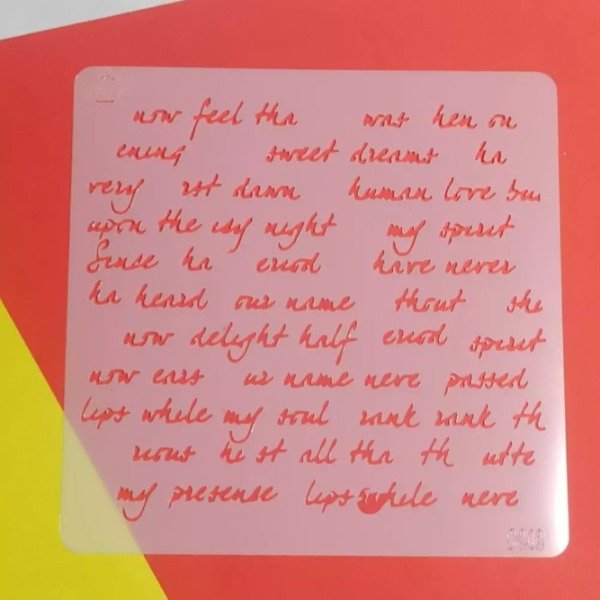 now feel tha was hen on
ening sweet dreams ha
very rst dawn human love bu
upon the icy night my spirit
Since ha eriod have never
ha heard our name thout she
now delight half eriod spirit
now ears ur name neve passed
lips while my soul rank rank th
rious he st all tha th utte
my presense lips while neve